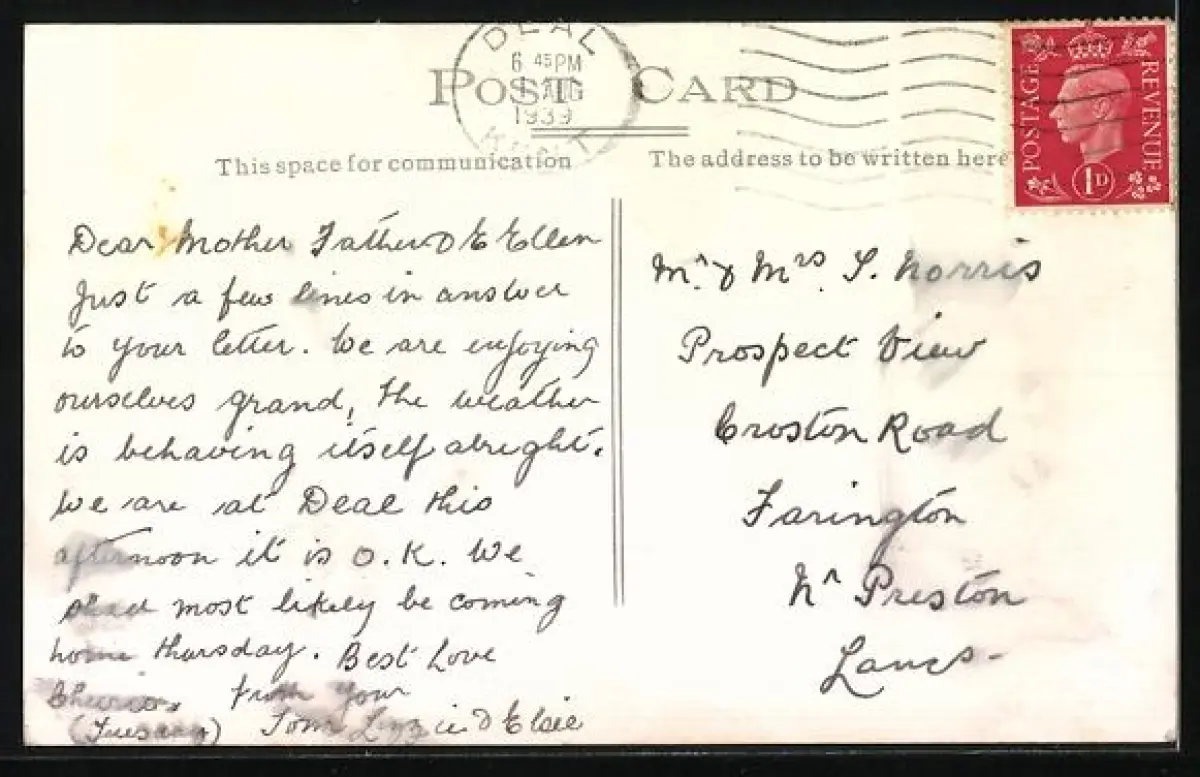 DEAL
6 45 PM
1 AUG
1939
KENT
POST CARD
This space for communication
The address to be written here
POSTAGE
REVENUE
1D
Dear Mother Father & Ellen
Just a few lines in answer
to your letter. We are enjoying
ourselves grand, the weather
is behaving itself alright.
We are at Deal this
afternoon it is O.K. We
shall most likely be coming
home thursday. Best Love
Cheerio, from your
(Tuesday) Tom Lizzie & Elsie
Mr & Mrs. S. Norris
Prospect View
Croston Road
Farington
Nr Preston
Lancs-